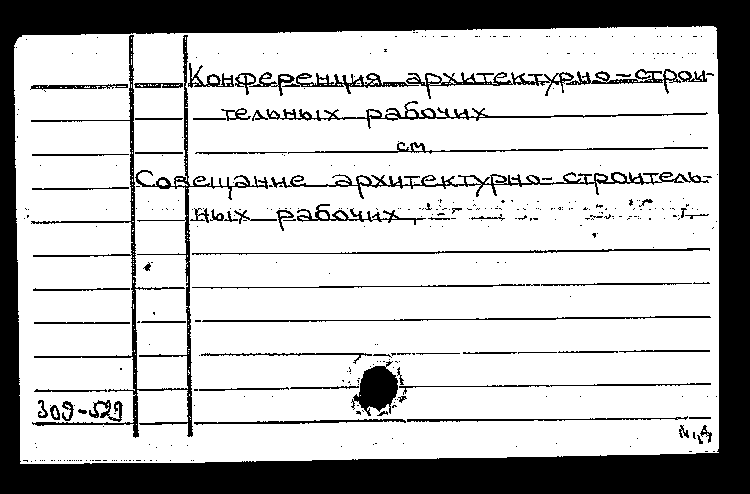 Конференция архитектурно-строи-
тельных рабочих
см.
Совещание архитектурно-строитель-
ных рабочих
309-529